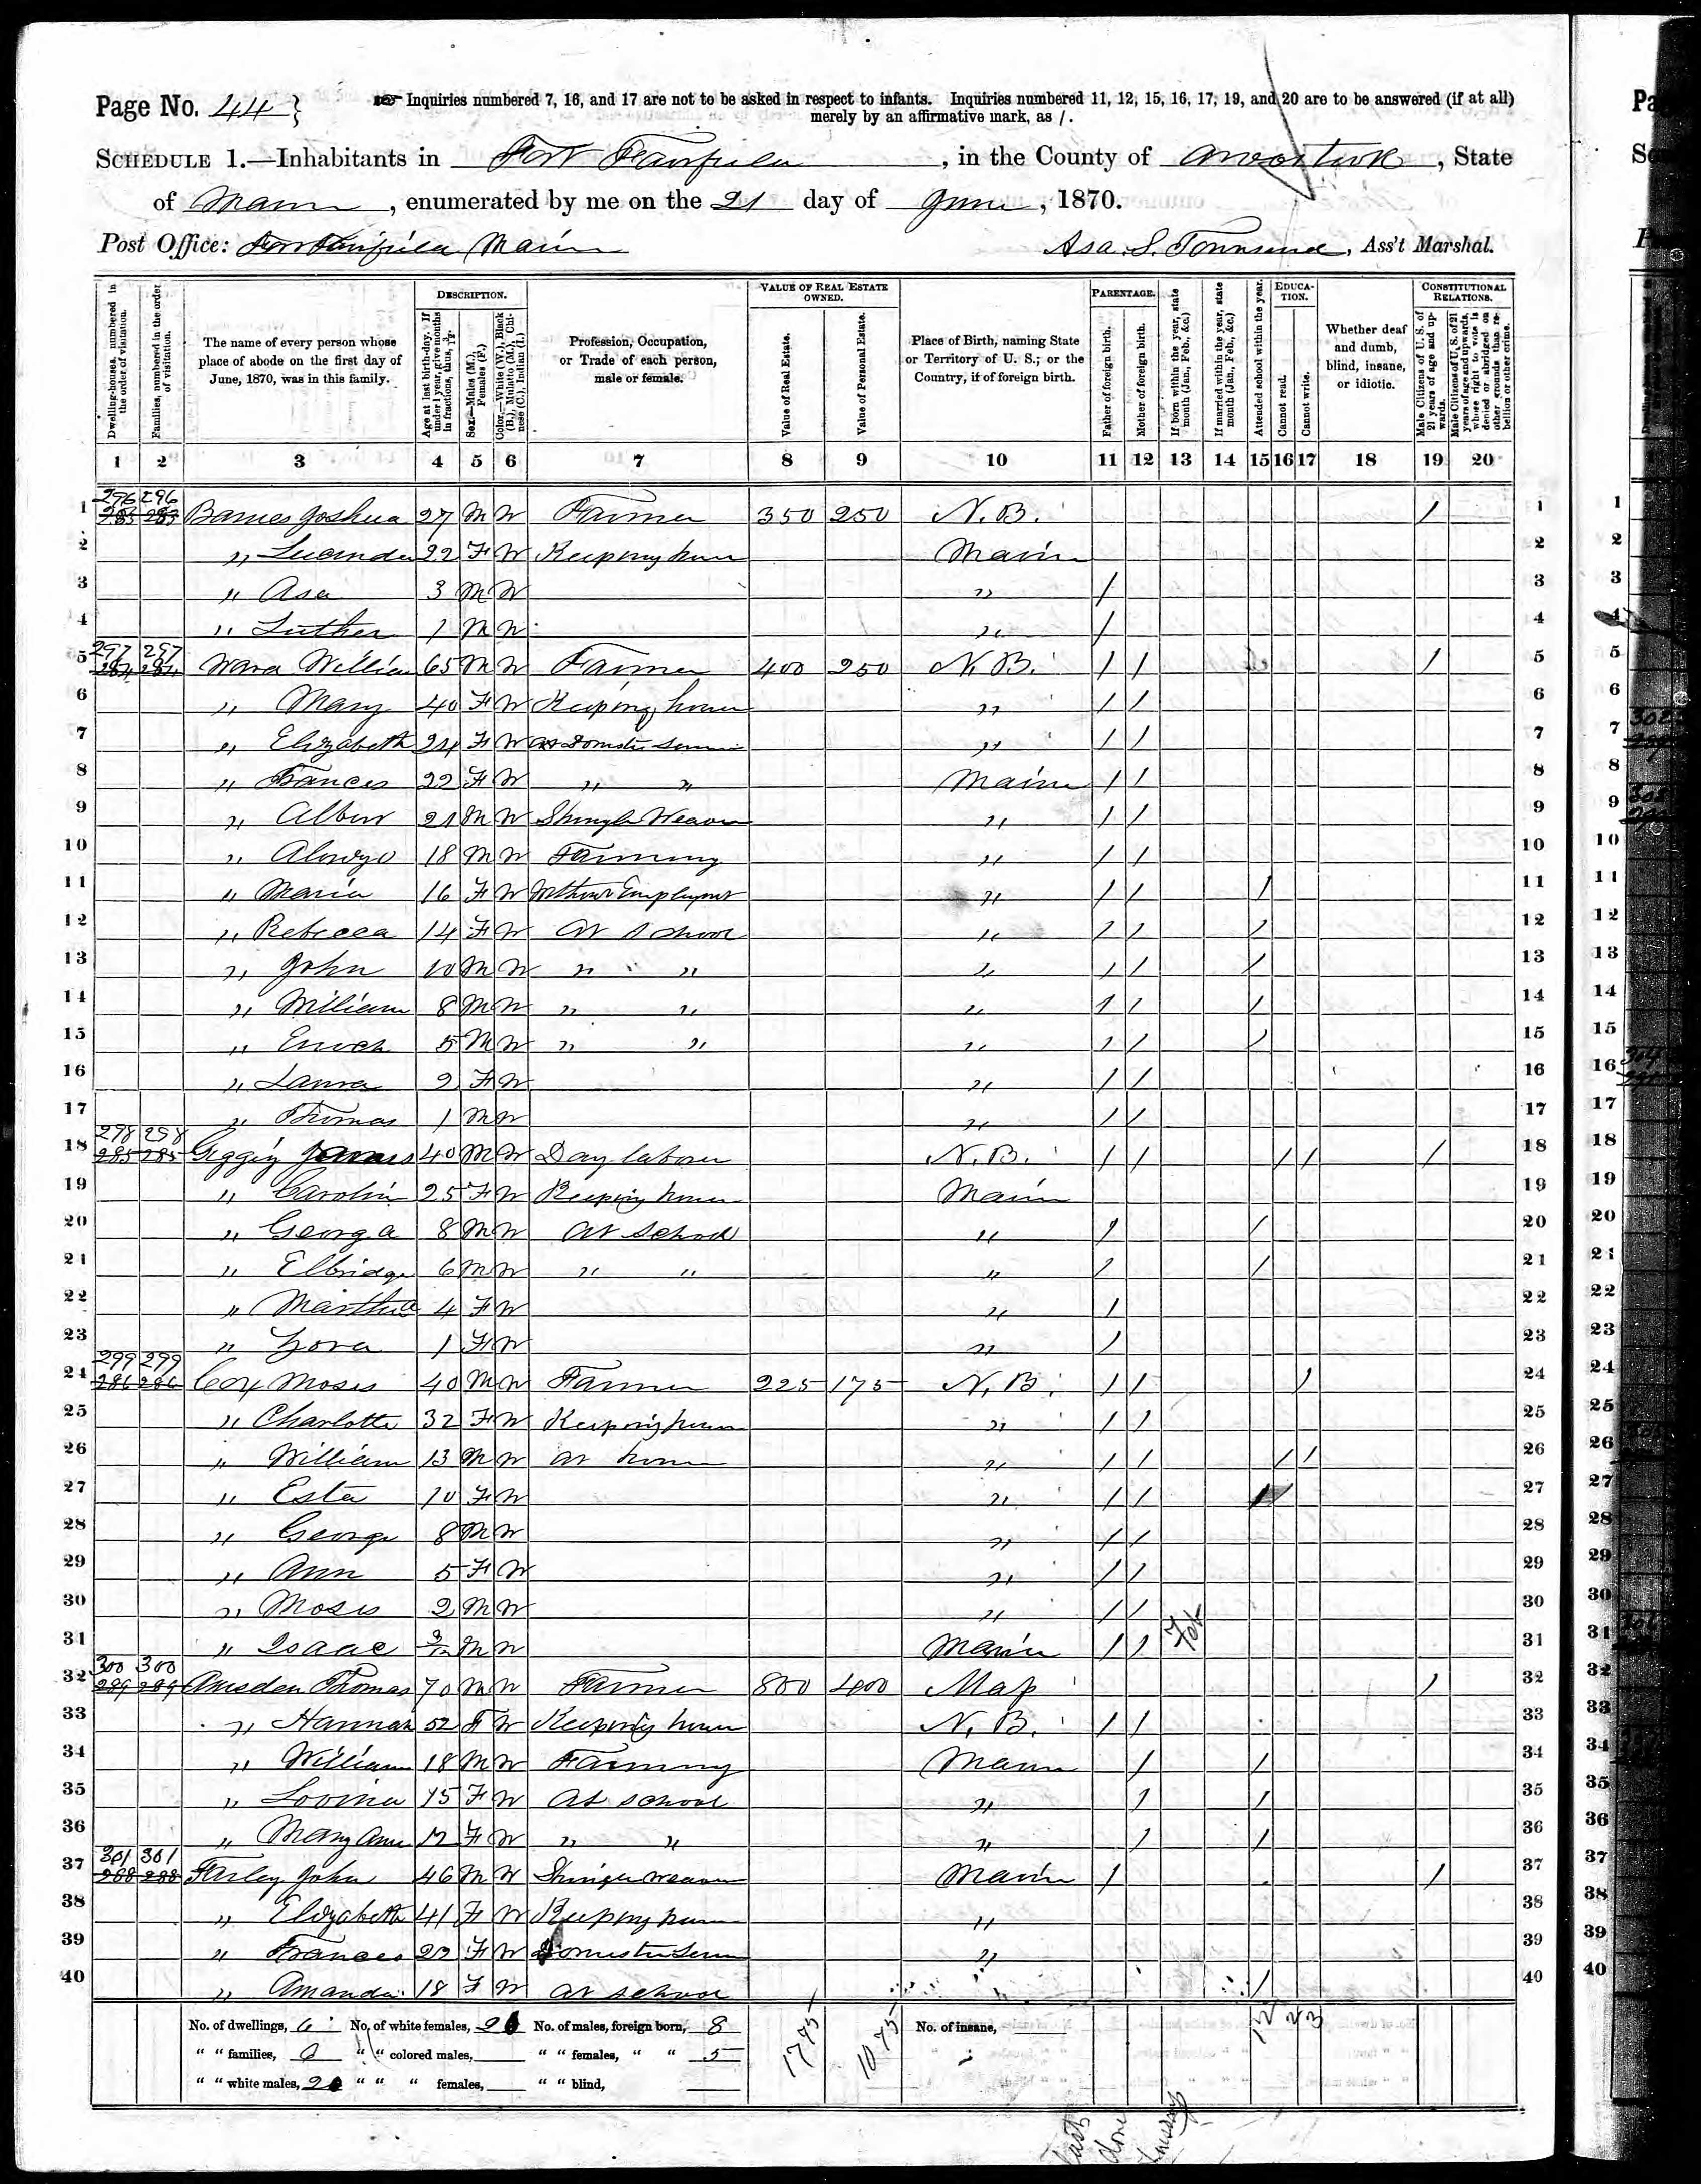 Page No. 44
Inquiries numbered 7, 16, and 17 are not to be asked in respect to infants. Inquiries numbered 11, 12, 15, 16, 17, 19, and 20 are to be answered (if at all)
merely by an affirmative mark, as /.
SCHEDULE 1.—Inhabitants in Fort Fairfield, in the County of Aroostook, State
of Maine, enumerated by me on the 21 day of June, 1870.
Post Office: Fort Fairfield Maine Asa. S. Townsend, Ass't Marshal.
Dwelling-houses, numbered in the order of visitation.
Families, numbered in the order of visitation.
The name of every person whose place of abode on the first day of June, 1870, was in this family.
DESCRIPTION.
Age at last birth-day. If under 1 year, give months in fractions, thus, 3/12.
Sex.—Males (M.), Females (F.)
Color.—White (W.), Black (B.), Mulatto (M.), Chinese (C.), Indian (I.)
Profession, Occupation, or Trade of each person, male or female.
VALUE OF REAL ESTATE OWNED.
Value of Real Estate.
Value of Personal Estate.
Place of Birth, naming State or Territory of U. S.; or the Country, if of foreign birth.
PARENTAGE.
Father of foreign birth.
Mother of foreign birth.
If born within the year, state month (Jan., Feb., &c.)
If married within the year, state month (Jan., Feb., &c.)
Attended school within the year.
EDUCATION.
Cannot read.
Cannot write.
Whether deaf and dumb, blind, insane, or idiotic.
CONSTITUTIONAL RELATIONS.
Male Citizens of U. S. of 21 years of age and upwards.
Male Citizens of U. S. of 21 years of age and upwards, whose right to vote is denied or abridged on other grounds than rebellion or other crime.
1 2 3 4 5 6 7 8 9 10 11 12 13 14 15 16 17 18 19 20
296 296
1 283 283 Barnes Joshua 27 M W Farmer 350 250 N. B. / 1
2 " Lucinda 22 F W Keeping house Maine 2
3 " Asa 3 M W " / 3
4 " Luther 1 M W " / 4
297 297
5 284 284 Ward William 65 M W Farmer 400 250 N. B. / / / 5
6 " Mary 40 F W Keeping house " / / 6
7 " Elizabeth 24 F W " / / 7
8 " Frances 22 F W " " Maine / / 8
9 " Albert 21 M W Shingle Weaver " / / 9
10 " Alonzo 18 M W Farming " / / 10
11 " Maria 16 F W Without Employment " / / / 11
12 " Rebecca 14 F W At School " / / / 12
13 " John 10 M W " " " / / / 13
14 " William 8 M W " " " / / / 14
15 " Enoch 5 M W " " " / / / 15
16 " Laura 2 F W " / / 16
17 " Thomas 1 M W " / / 17
298 298
18 285 285 James 40 M W Day laborer N. B. / / / / / 18
19 " Caroline 25 F W Keeping house Maine 19
20 " George 8 M W At School " / / 20
21 " Elbridge 6 M W " " " / / 21
22 " Martha 4 F W " / 22
23 " Zora 1 F W " / 23
299 299
24 286 286 Cox Moses 40 M W Farmer 225 175 N. B. / / / 24
25 " Charlotte 32 F W Keeping house " / / 25
26 " William 13 M W At home " / / / / 26
27 " Esta 10 F W " / / / / 27
28 " George 8 M W " / / 28
29 " Ann 5 F W " / / 29
30 " Moses 2 M W " / / 30
31 " Isaac 3/12 M W Maine / / Feb 31
300 300
32 Amsden Thomas 70 M W Farmer 800 400 Mass / 32
33 " Hannah 52 F W Keeping house N. B. / / 33
34 " William 18 M W Farming Maine / / 34
35 " Lovina 15 F W At school " / / 35
36 " Mary Ann 12 F W " " " / / 36
301 301
37 288 288 Farley John 46 M W Shingle weaver Maine / / 37
38 " Elizabeth 41 F W Keeping house " 38
39 " Frances 22 F W " 39
40 " Amanda 18 F W At school " / 40
No. of dwellings, 6 No. of white females, 20 No. of males, foreign born, 8 1775 1075 No. of insane, 12 2 3
" " families, 6 " " colored males, " " females, " " 5
" " white males, 20 " " " females, " " blind,
last
done
Tuesday